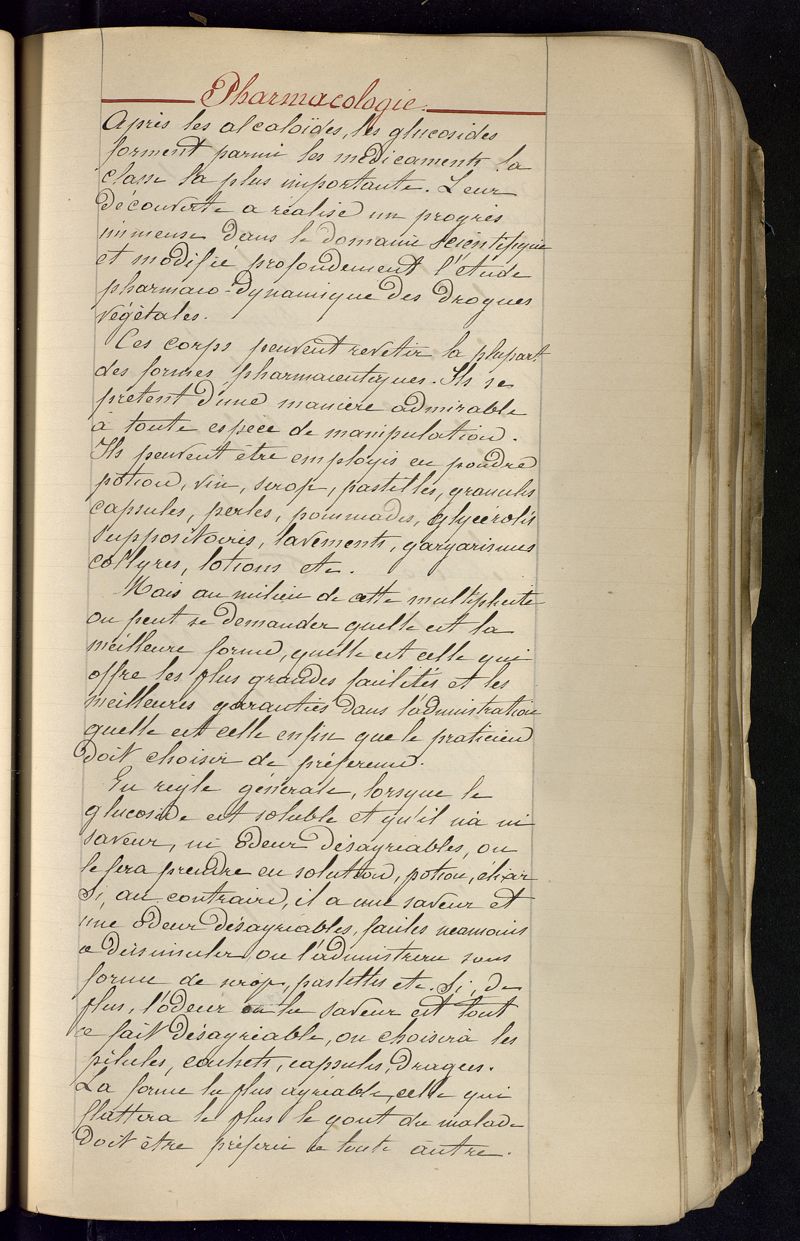 Pharmacologie.
Après les alcaloïdes, les glucosides
forment parmi les médicaments la
classe la plus importante. Leur
découverte a réalisé un progrès
immense dans le domaine scientifique
et modifié profondement l'étude
pharmaco-dynamique des drogues
végétales.
Ces corps peuvent revetir la plupart
des formes pharmaceutiques. Ils se
prêtent d'une manière admirable
à toute espece de manipulation.
Ils peuvent être employés en poudre
potion, vin, sirop, pastilles, granules
capsules, perles, pommades, glycérolés
suppositoires, lavements, gargarismes
collyres, lotions etc.
Mais au milieu de cette multiplicité
on peut se demander quelle est la
meilleure forme, quelle est celle qui
offre les plus grandes facilités et les
meilleures garanties dans l'administration
quelle est celle enfin que le praticien
doit choisir de préference.
En règle générale, lorsque le
glucoside est soluble et qu'il n'a ni
saveur, ni odeur désagréables, on
le fera prendre en solution, potion, élixir
Si, au contraire, il a une saveur et
une odeur désagréables, faciles neamoins
a dissimuler on l'administrera sous
forme de sirop, pastilles etc. Si, de
plus, l'odeur ou la saveur est tout
a fait désagréable, on choisira les
pilules, cachets, capsules, dragees.
La forme la plus agréable, celle qui
flattera le plus le gout du malade
doit être préferée a toute autre.